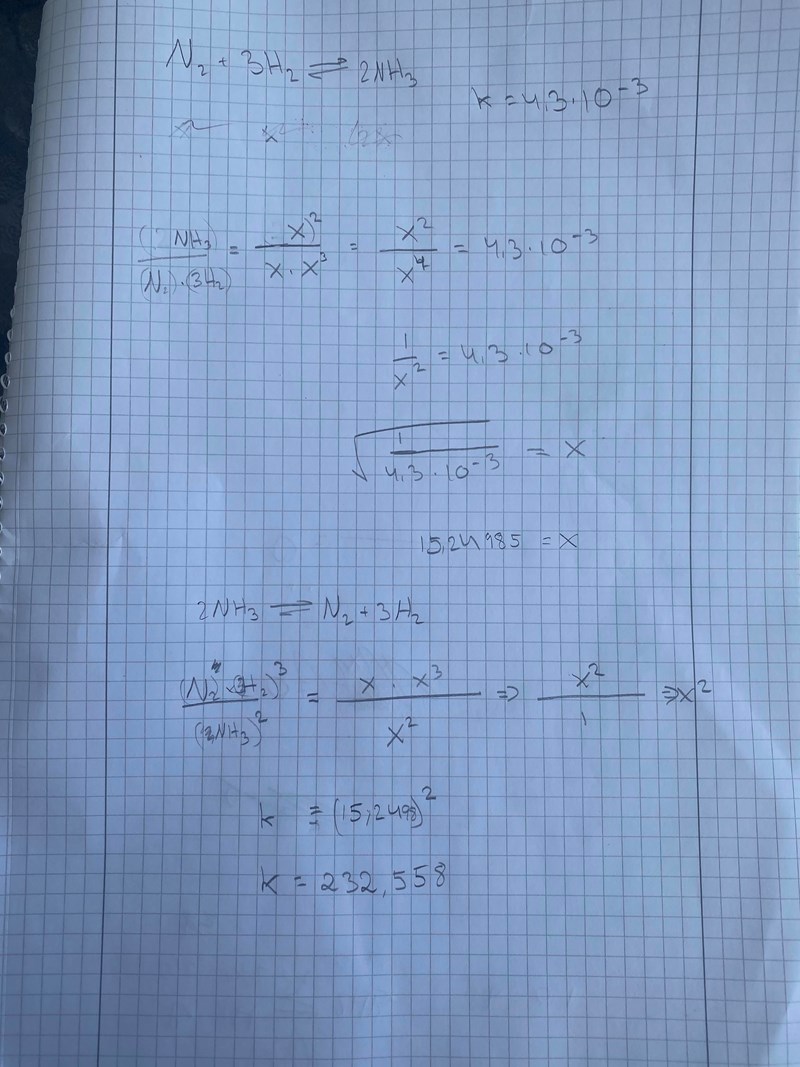 N₂ + 3H₂ ⇌ 2NH₃
k = 4,3·10⁻³
(NH₃) / (N₂)·(3H₂) = x)² / x·x³ = x² / x⁴ = 4,3·10⁻³
1 / x² = 4,3·10⁻³
√(1 / 4,3·10⁻³) = x
15,24985 = x
2NH₃ ⇌ N₂ + 3H₂
(N₂)·(H₂)³ / (NH₃)² = x · x³ / x² ⇒ x² / 1 ⇒ x²
k = (15,2498)²
k = 232,558